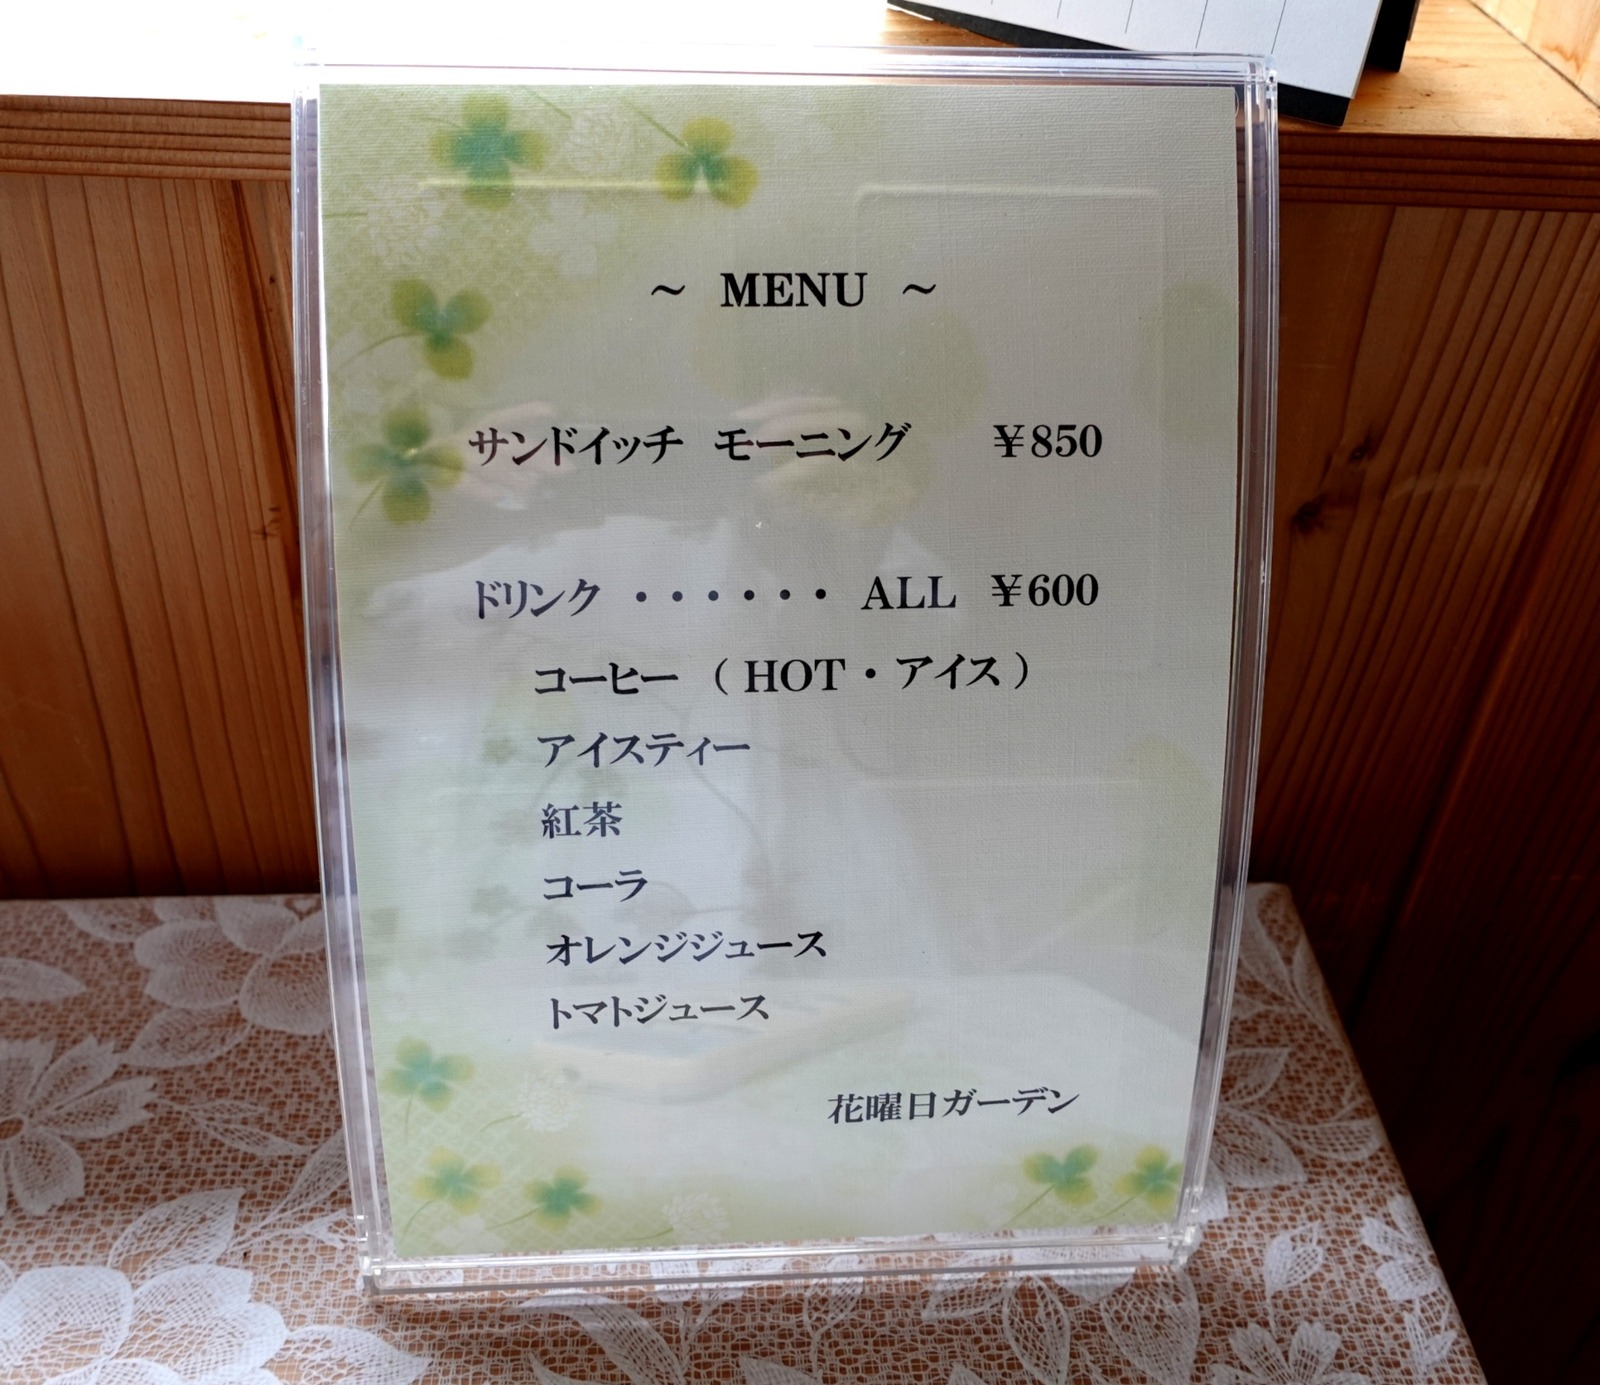 ～ MENU ～
サンドイッチ モーニング ¥850
ドリンク ・・・・・・ ALL ¥600
コーヒー （ HOT・アイス ）
アイスティー
紅茶
コーラ
オレンジジュース
トマトジュース
花曜日ガーデン